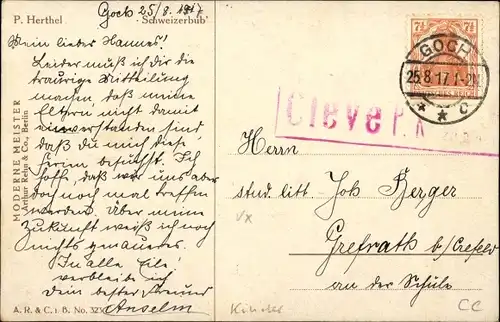 P. Herthel
Schweizerbub'
Goch 25/8. 1917
Mein lieber Hannes!
Leider muß ich Dir die
traurige Mitteilung
machen, daß meine
Eltern nicht damit
einverstanden sind
daß du mich diese
Ferien besuchst. Ich
hoffe, daß wir uns aber
doch noch mal treffen
werden. Über meine
Zukunft weiß ich noch
nichts genaueres.
In aller Eile
verbleibe ich
Dein bester Freund
Anselm
MODERNE MEISTER
Arthur Rehn & Co., Berlin
A. R. & C. i. B. No. 325
7½ 7½
GOCH
25.8.17.1-2N
* * c
Cleve P.K
Herrn
stud. litt. Joh Berger
Grefrath b/Crefeld
an der Schule
CC